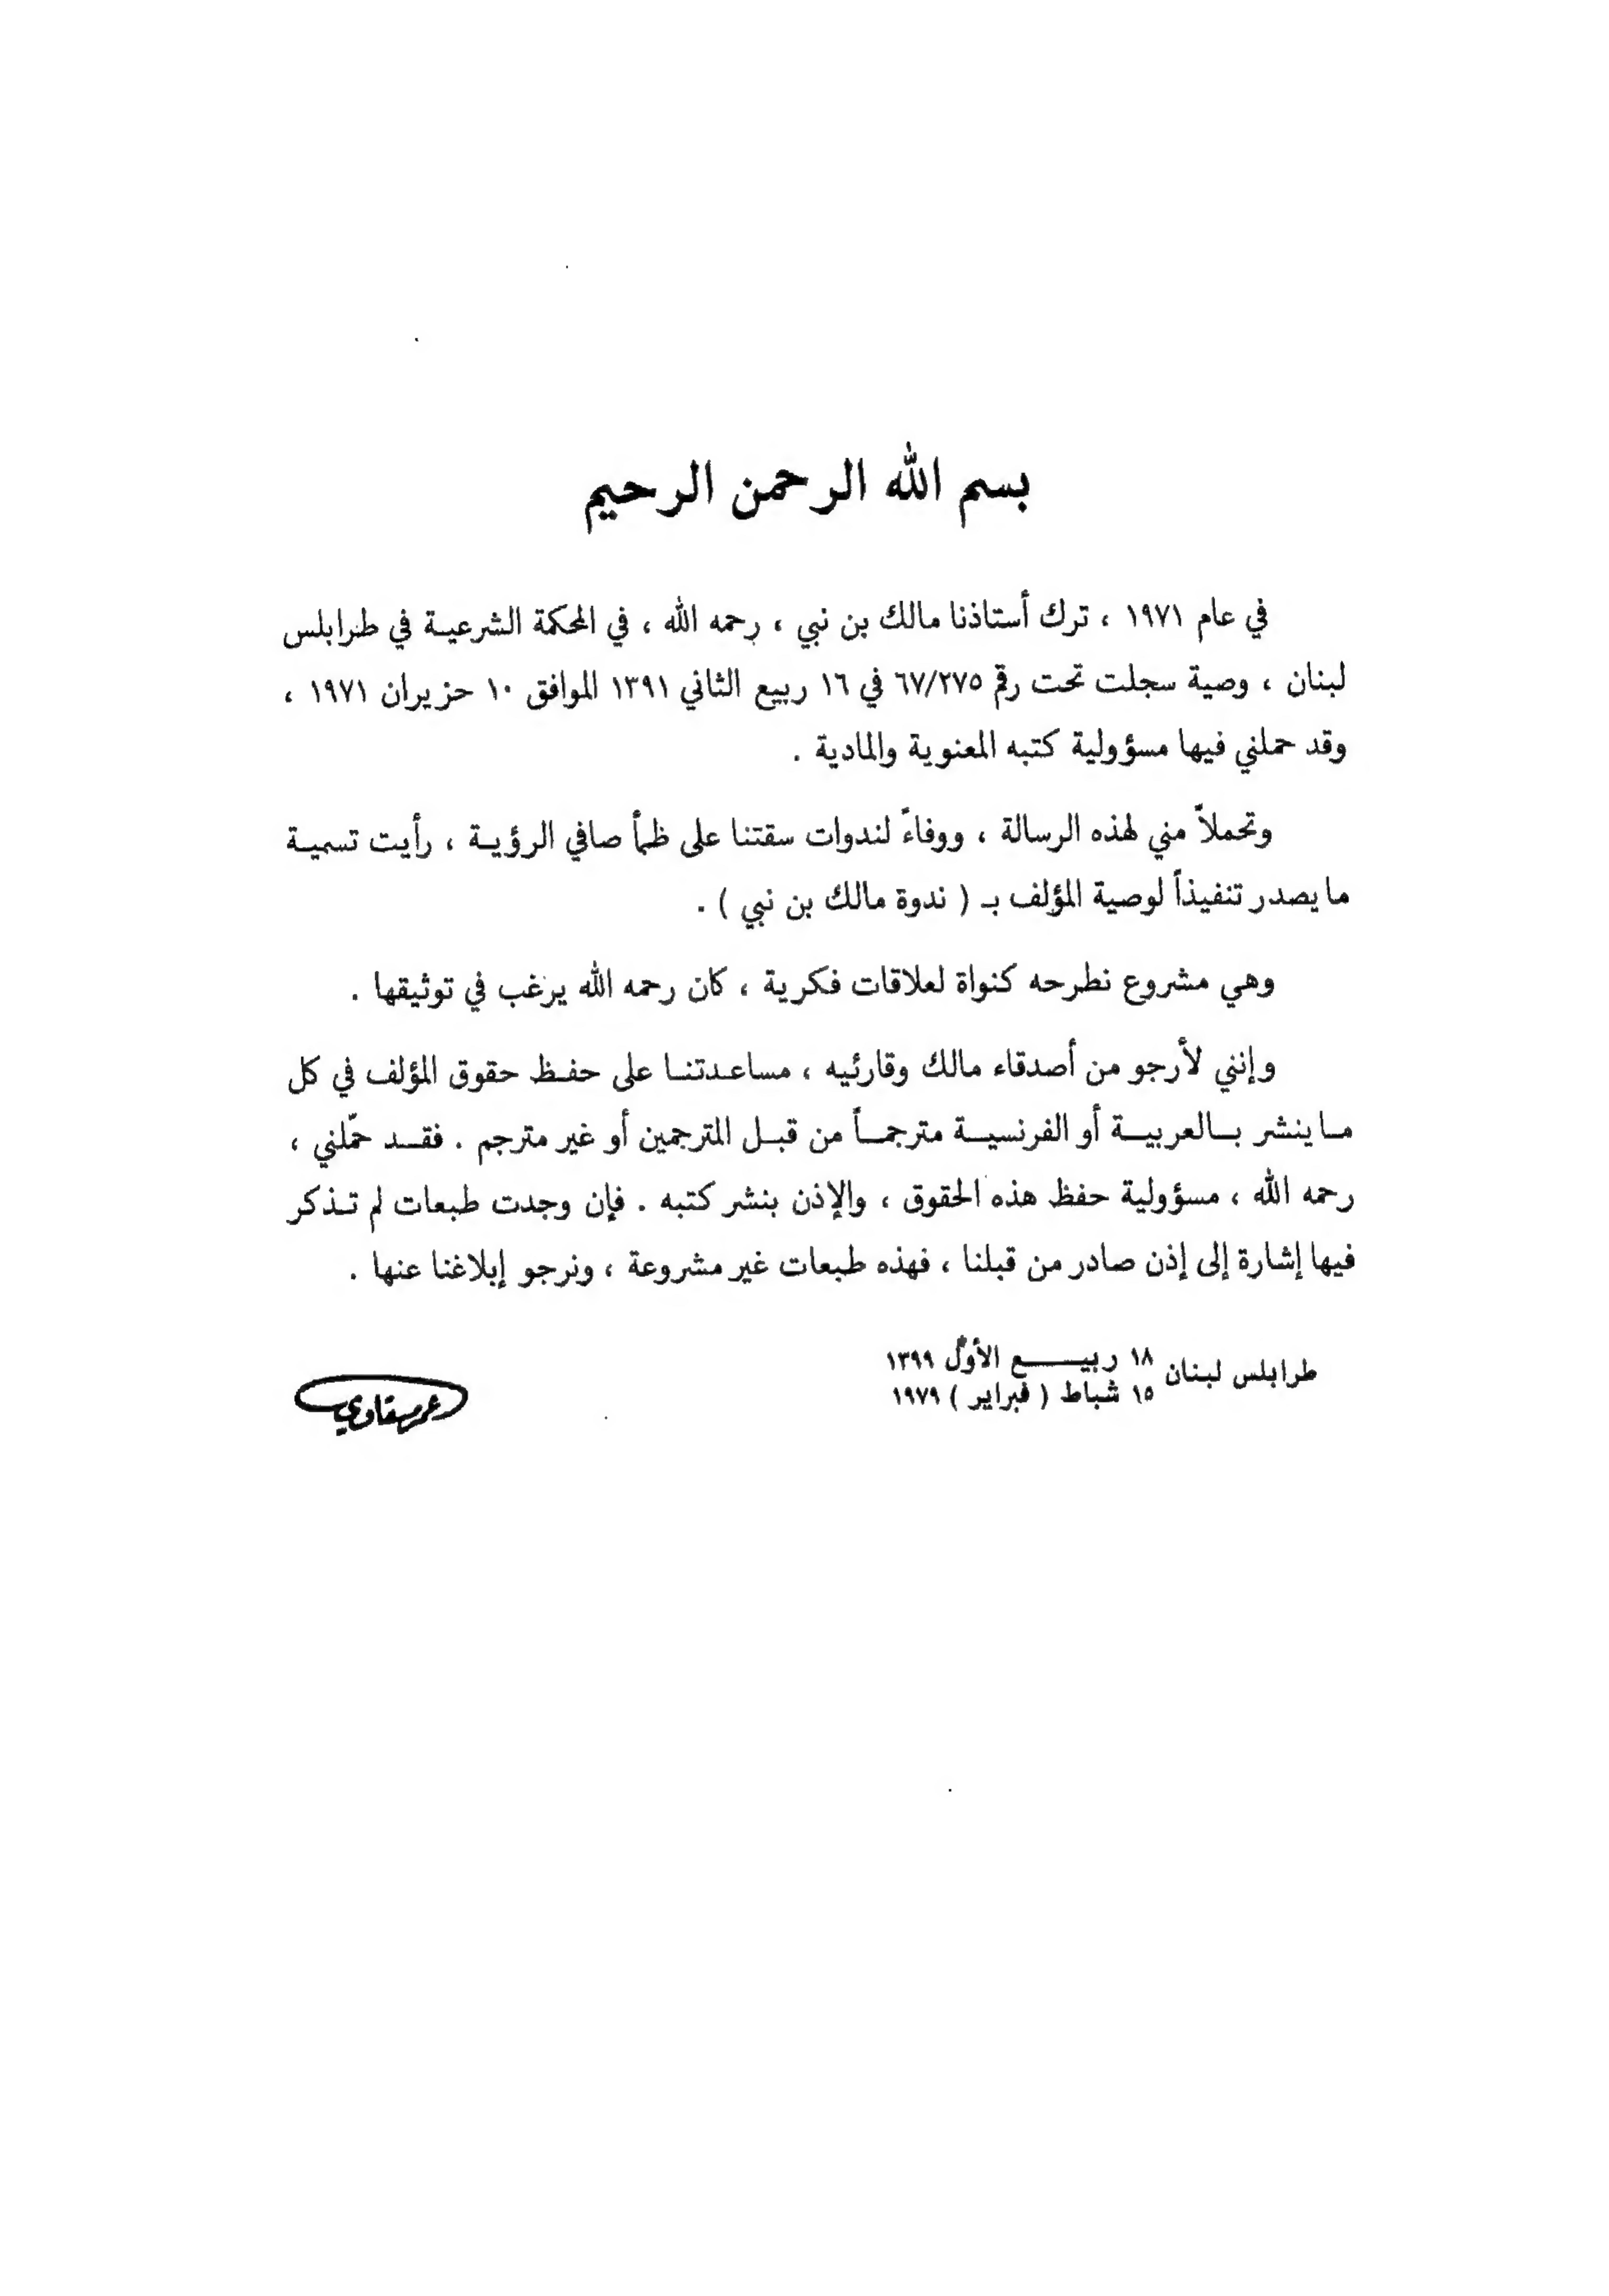 بسم الله الرحمن الرحيم
في عام ١٩٧١ ، ترك أستاذنا مالك بن نبي ، رحمه الله ، في المحكمة الشرعية في طرابلس
لبنان ، وصية سجلت تحت رقم ٦٧/٢٧٥ في ١٦ ربيع الثاني ١٣٩١ الموافق ١٠ حزيران ١٩٧١ ،
وقد حملني فيها مسؤولية كتبه المعنوية والمادية .
وتحملاً مني لهذه الرسالة ، ووفاءً لندوات سقتنا على ظمأ صافي الرؤية ، رأيت تسمية
ما يصدر تنفيذاً لوصية المؤلف بـ ( ندوة مالك بن نبي ) .
وهي مشروع نطرحه كنواة لعلاقات فكرية ، كان رحمه الله يرغب في توثيقها .
وإنني لأرجو من أصدقاء مالك وقارئيه ، مساعدتنا على حفظ حقوق المؤلف في كل
ما ينشر بالعربية أو الفرنسية مترجماً من قبل المترجمين أو غير مترجم . فقد حمّلني ،
رحمه الله ، مسؤولية حفظ هذه الحقوق ، والإذن بنشر كتبه . فإن وجدت طبعات لم تذكر
فيها إشارة إلى إذن صادر من قبلنا ، فهذه طبعات غير مشروعة ، ونرجو إبلاغنا عنها .
طرابلس لبنان ١٨ ربيع الأول ١٣٩٩
١٥ شباط ( فبراير ) ١٩٧٩
عمر مسقاوي